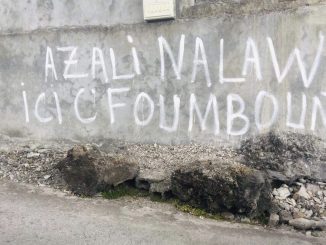 AZALI NALAW
İCİ C FOUMBOUN